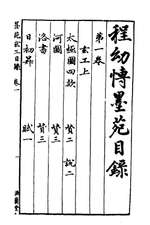 程幼博墨苑目錄
第一卷
玄工上
太極圖四款 贊二 說二
河圖 贊三
洛書 贊三
日初昇 賦一
墨苑玄工目錄 卷一
滋蘭堂